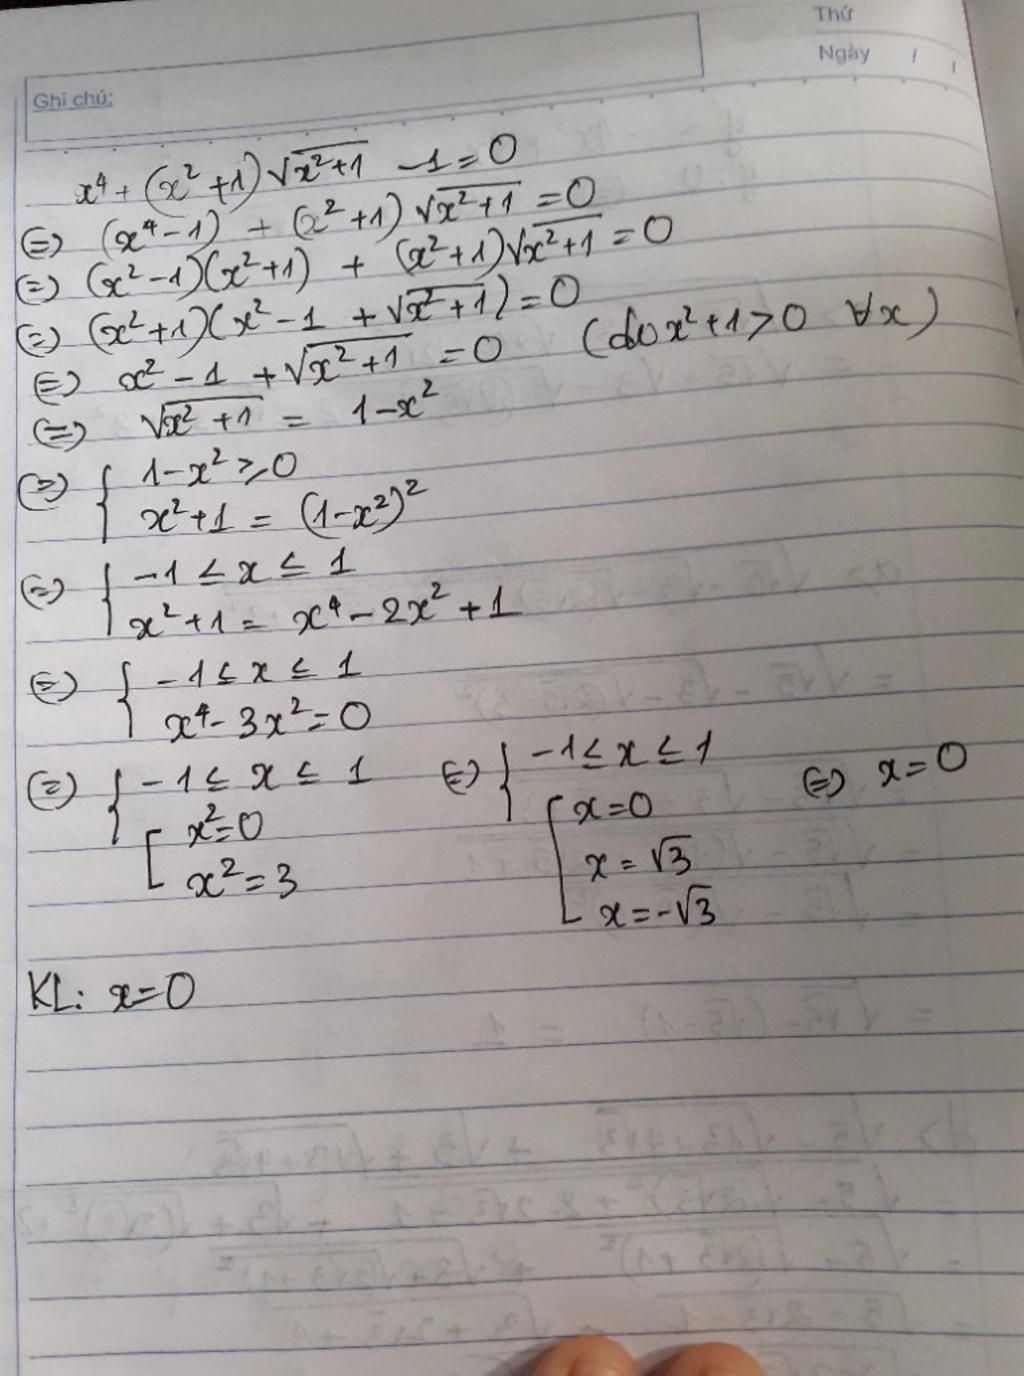 Thứ
Ngày / /
Ghi chú:
x⁴ + (x² + 1)√(x²+1) - 1 = 0
(=) (x⁴ - 1) + (x² + 1)√(x²+1) = 0
(=) (x² - 1)(x² + 1) + (x² + 1)√(x²+1) = 0
(=) (x² + 1)(x² - 1 + √(x²+1)) = 0
(=) x² - 1 + √(x²+1) = 0 (do x² + 1 > 0 ∀x)
(=) √(x²+1) = 1 - x²
(=) { 1 - x² ≥ 0
x² + 1 = (1 - x²)²
(=) { -1 ≤ x ≤ 1
x² + 1 = x⁴ - 2x² + 1
(=) { -1 ≤ x ≤ 1
x⁴ - 3x² = 0
(=) { -1 ≤ x ≤ 1
[ x² = 0
x² = 3
(=) { -1 ≤ x ≤ 1
[ x = 0
x = √3
x = -√3
(=) x = 0
KL: x = 0